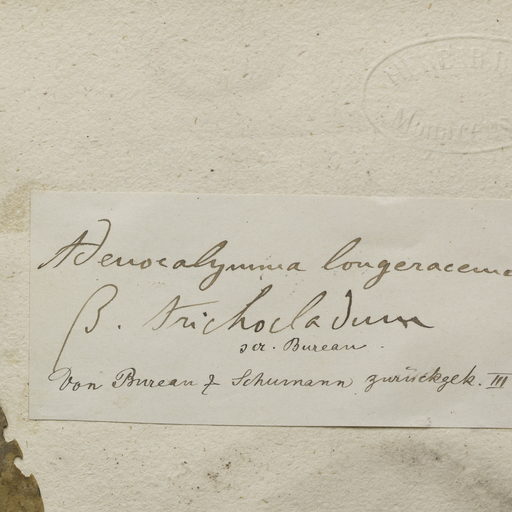 Adenocalymma longeracemo
β. trichocladum
scr. Bureau.
Von Bureau & Schumann zurückgek. III